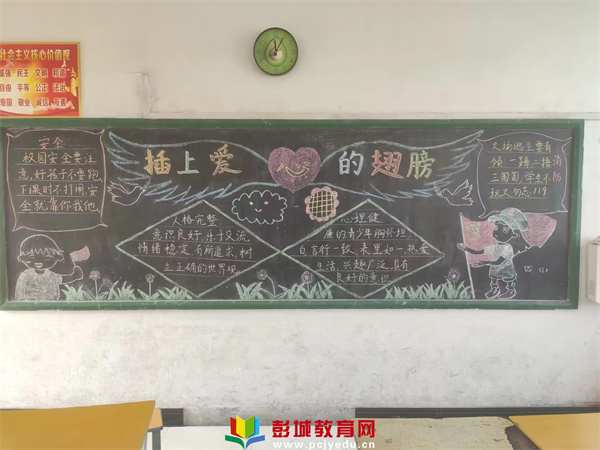 社会主义核心价值观
富强 民主 文明 和谐
自由 平等 公正 法治
爱国 敬业 诚信 友善
插上爱心的翅膀
安全
校园安全要注
意,好孩子不要跑
下课时不打闹,安
全就靠你我他
人格完整
意识良好,乐于交流
情绪稳定,有所追求,树
立正确的世界观
心理健
康的青少年胸怀坦
白言行一致,表里如一,热爱
生活,兴趣广泛,具有
良好的意识
火场逃生要有
领,一蹲二捂
三匍匐,学生不
玩火勿忘119
消
防
四(1)
彭城教育网
www.pcjyedu.cn